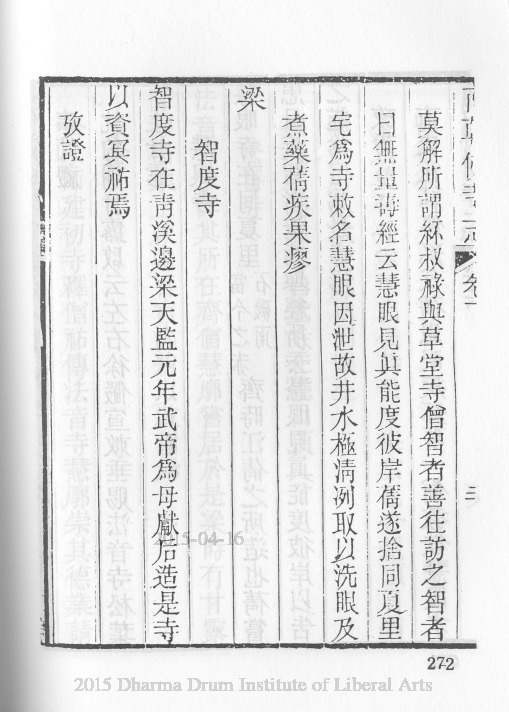 南朝佛寺志 卷上
莫解所謂絲叔祿與草堂寺僧智者善往訪之智者
曰無量壽經云慧眼見真能度彼岸蒨遂捨同夏里
宅爲寺敕名慧眼因泄故井水極淸洌取以洗眼及
煮藥蒨疾果瘳
梁
智度寺
智度寺在靑溪邊梁天監元年武帝爲母獻后造是寺
以資冥祐焉
攷證
272
2015-04-16
2015 Dharma Drum Institute of Liberal Arts